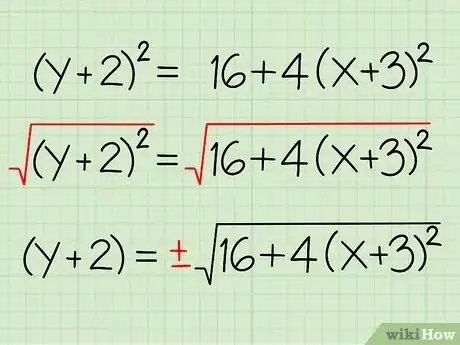 (y+2)² = 16+4(x+3)²
√(y+2)² = √16+4(x+3)²
(y+2) = ±√16+4(x+3)²
wikiHow